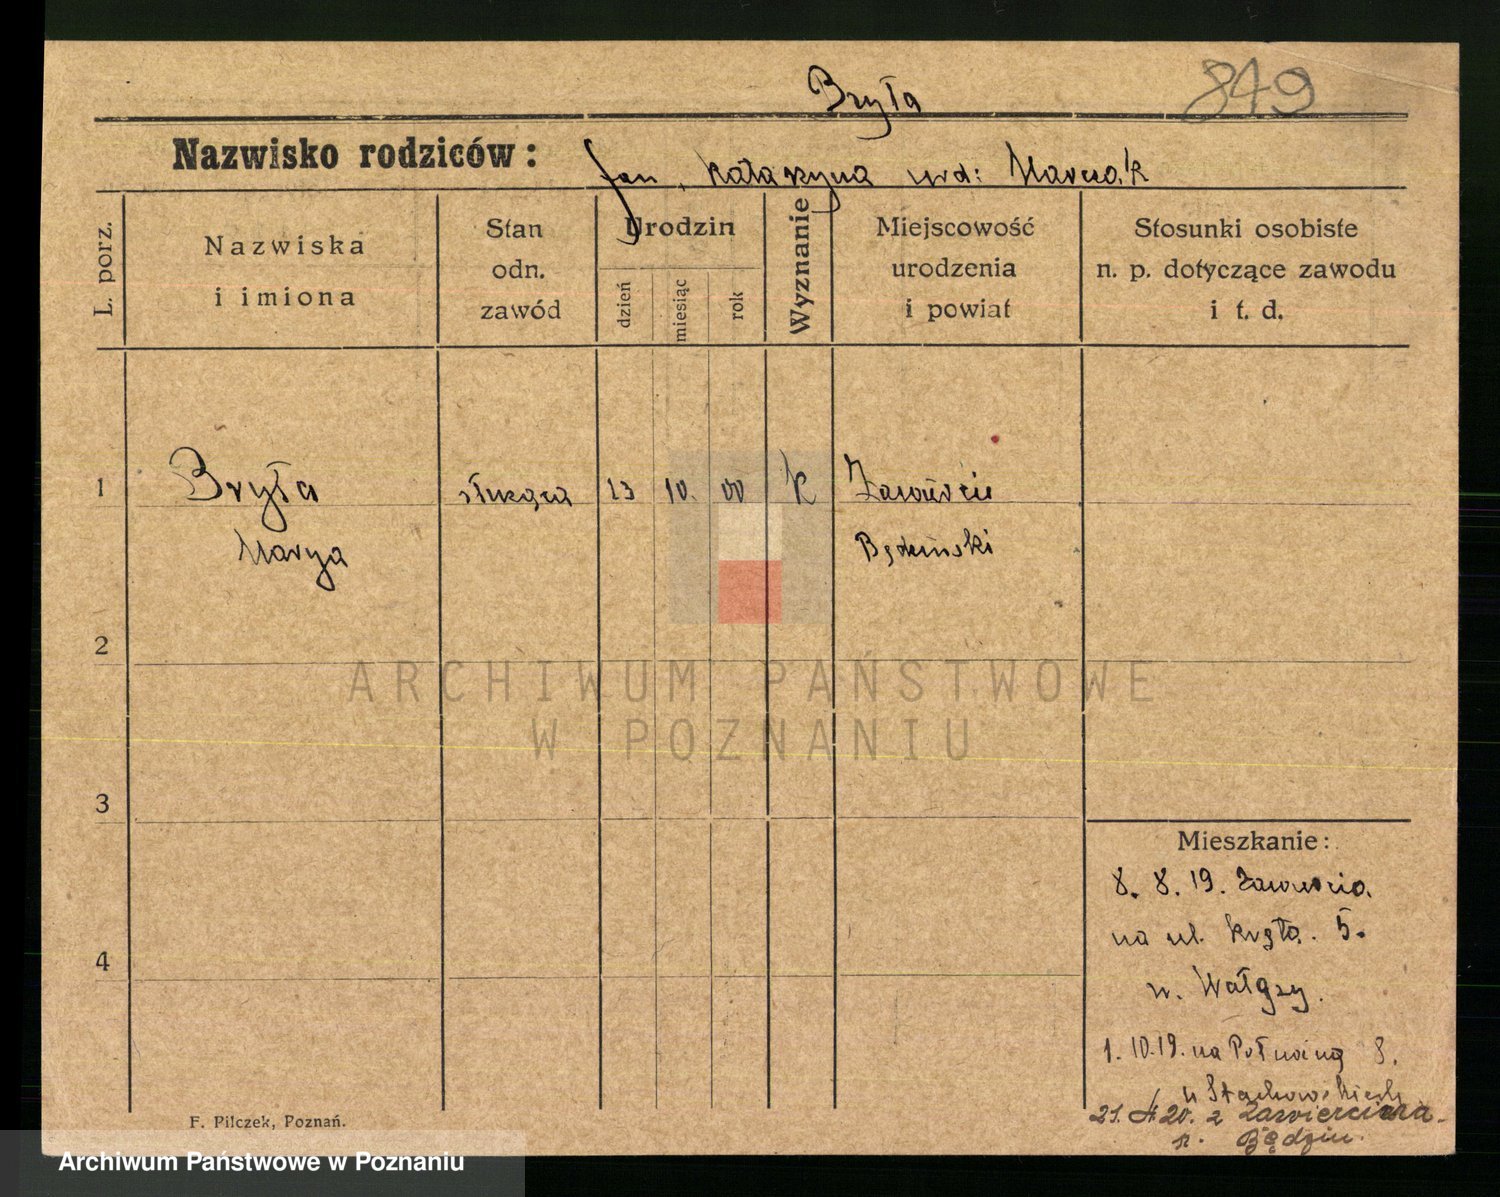 Bryła
849
Nazwisko rodziców: Jan, Katarzyna urd: Marciak
L. porz.
Nazwiska
i imiona
Stan
odn.
zawód
Urodzin
dzień
miesiąc
rok
Wyznanie
Miejscowość
urodzenia
i powiat
Stosunki osobiste
n. p. dotyczące zawodu
i t. d.
1
Bryła
Marya
służąca
13
10.
00
k
Zawiercie
Będziński
2
ARCHIWUM PAŃSTWOWE
W POZNANIU
3
4
Mieszkanie:
8. 8. 19. Zawiercia.
na ul. 5.
u.
1. 10.19. na 8.
u
21. 20. z Zawiercia
p. Będzin.
F. Pilczek, Poznań.
Archiwum Państwowe w Poznaniu